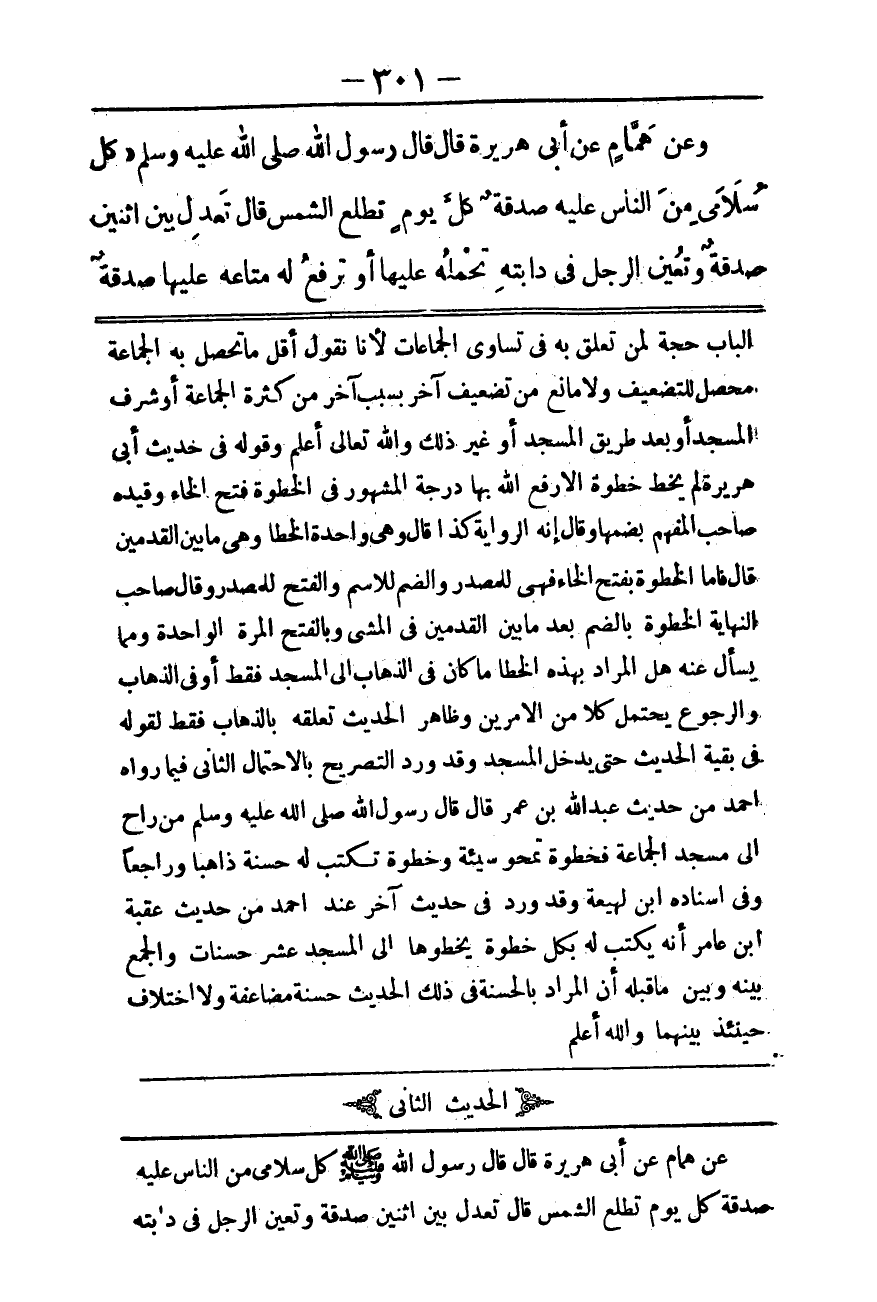 — ٣٠١ —
وعن هَمَّامٍ عن أبى هريرة قال قال رسول الله صلى الله عليه وسلم « كل
سُلَامَى مِنَ الناس عليه صدقةٌ كلَّ يومٍ تطلع الشمس قال تَعدِل بين اثنين
صدقةٌ وتُعين الرجل فى دابته تَحْمِلُه عليها أو ترفعُ له متاعه عليها صدقةٌ
الباب حجة لمن تعلق به فى تساوى الجماعات لأنا نقول أقل ماتحصل به الجماعة
محصل للتضعيف ولا مانع من تضعيف آخر بسبب آخر من كثرة الجماعة أوشرف
المسجد أو بعد طريق المسجد أو غير ذلك والله تعالى أعلم وقوله فى حديث أبى
هريرة لم يخط خطوة الا رفع الله بها درجة المشهور فى الخطوة فتح الخاء وقيده
صاحب المفهم بضمها وقال إنه الرواية كذا قال وهى واحدة الخطا وهى مابين القدمين
قال فاما الخطوة بفتح الخاء فهى للمصدر والضم للاسم والفتح للمصدر وقال صاحب
النهاية الخطوة بالضم بعد مابين القدمين فى المشى وبالفتح المرة الواحدة ومما
يسأل عنه هل المراد بهذه الخطا ماكان فى الذهاب الى المسجد فقط أو فى الذهاب
والرجوع يحتمل كلا من الامرين وظاهر الحديث تعلقه بالذهاب فقط لقوله
فى بقية الحديث حتى يدخل المسجد وقد ورد التصريح بالاحتمال الثانى فيما رواه
احمد من حديث عبدالله بن عمر قال قال رسول الله صلى الله عليه وسلم من راح
الى مسجد الجماعة فخطوة تمحو سيئة وخطوة تكتب له حسنة ذاهبا وراجعاً
وفى اسناده ابن لهيعة وقد ورد فى حديث آخر عند احمد من حديث عقبة
ابن عامر أنه يكتب له بكل خطوة يخطوها الى المسجد عشر حسنات والجمع
بينه وبين ماقبله أن المراد بالحسنة فى ذلك الحديث حسنة مضاعفة ولا اختلاف
حينئذ بينهما والله أعلم
الحديث الثانى
عن همام عن أبى هريرة قال قال رسول الله ﷺ كل سلامى من الناس عليه
صدقة كل يوم تطلع الشمس قال تعدل بين اثنين صدقة وتعين الرجل فى دابته